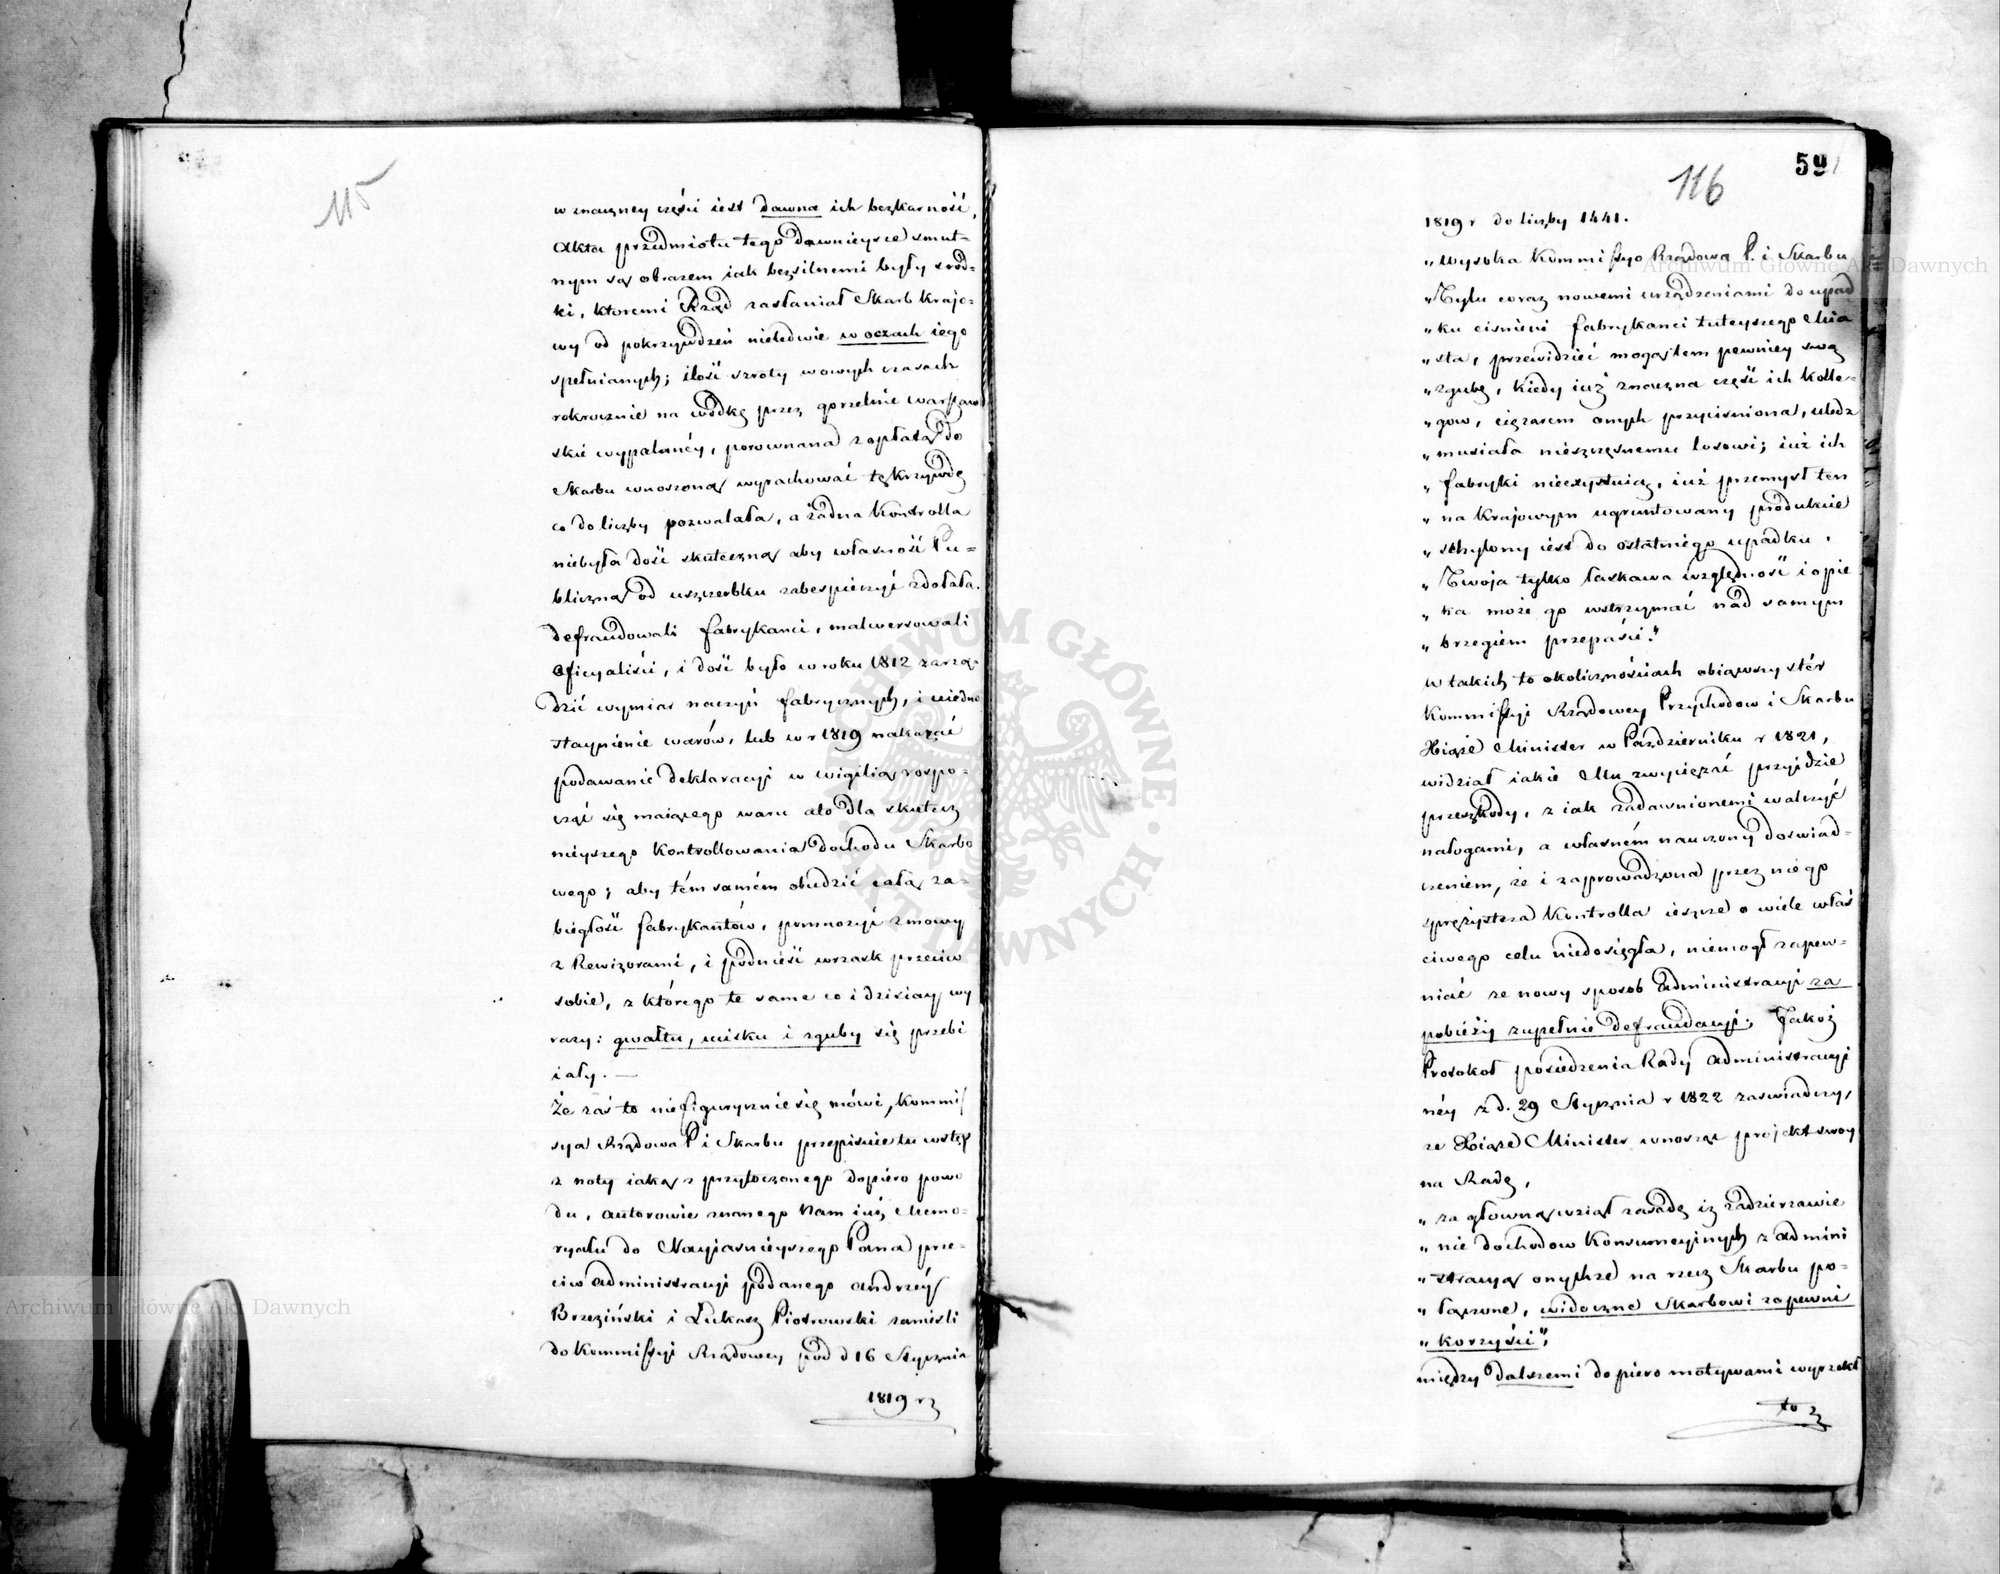 115
w znaczney części iest dawna ich bezkarność.
Akta przedmiotu tego dawnieysze smut-
nym są obrazem iak bezsilnemi były środ-
ki, ktoremi Rząd zasłaniał Skarb krajo-
wy od pokrzywdzeń nieledwie w oczach iego
spełnianych; ilość szroty w owych czasach
rokrocznie na wódkę przez gorzelnie warszaw
skie wypalanéy, porownana z opłatą do
Skarbu wnoszoną wyrachować tę krzywdę
co do liczby pozwalała, a żadna Kontrolla
niebyła dość skuteczną aby własność Pu-
bliczną od uszczerbku zabespieczyć zdołała.
defraudowali fabrykanci, malwersowali
Oficyaliści, i dość było w roku 1812 zarzą-
dzić wymiar naczyń fabrycznych, i
stąpienie warów, lub w r 1819 nakazać
podawanie deklaracyi w wigilią rospo-
cząć się maiącego waru ato dla skutecz
nieyszego Kontrollowania dochodu Skarbo
wego; aby tém samém obudzić całą za-
biegłość fabrykantów, pomnożyć zmowy
z Rewizorami, i podnieść wrzask przeciw
sobie, z którego te same co i dzisiay wy
razy: gwałtu, ucisku i zguby się przebi
iały. —
Że zaś to niefigurycznie się mówi, Kommis
sya Rządowa P i Skarbu przepisuie tu wstęp
z noty iaką z przytoczonego dopiero powo
du, autorowie znanego Nam iuż Memo-
ryału do Nayiaśnieyszego Pana prze-
ciw administracyi podanego Andrzéy
Brzeziński i Łukasz Piotrowski zanieśli
do Kommissyi Rządowey pod d 16 Stycznia
1819 r
59
116
1819 r do liczby 1441.
„Wysoka Kommissyo Rządowa P. i Skarbu
„Tylu coraz nowemi urządzeniami do upad
„ku ciśnieni fabrykanci tuteyszego Mia
„sta, przewidzieć mogą tem pewniey swą
„zgubę, kiedy iuż znaczna część ich kolle-
„gow, ciężarem onych przyciśniona, uledz
„musiała nieszczęsnemu losowi; iuż ich
„fabryki nieexystuią, iuż przemysł ten
„na Krajowym ugruntowany produkcie
„schylony iest do ostatniego upadku.
„Twoja tylko łaskawa względność i opie
„ka może go wstrzymać nad samym
„brzegiem przepaści."
W takich to okolicznościach obiąwszy stér
Kommissyi Rządowey Przychodow i Skarbu
Xiąże Minister w Październiku r 1821,
widział iakie Mu zwyciężać przyjdzie
przeszkody, z iak zadawnionemi walczyć
nałogami, a własném nauczony doswiad-
czeniem, że i zaprowadzona przez niego
sprężysta Kontrolla ieszcze o wiele właś
ciwego celu niedosięgła, niemogł zapew-
niać ze nowy sposob Administracyi za
pobieży zupełnie defraudacyi; Jakoż
Protokoł posiedzenia Rady Administracyi
néy z d. 29 Stycznia r 1822 zaświadczy,
ze Xiąże Minister wnosząc projekt swoy
na Radę,
„za głowną wziął zasadę iz zadzierzawie
„nie dochodow Konsumcyinych z admini
„stracyą onychże na rzecz Skarbu po-
„łączone, widoczne Skarbowi zapewni
„korzyści";
między dalszemi dopiero motywami wyrzekł
to
ARCHIWUM GŁÓWNE AKT DAWNYCH
Archiwum Główne Akt Dawnych
Archiwum Główne Akt Dawnych